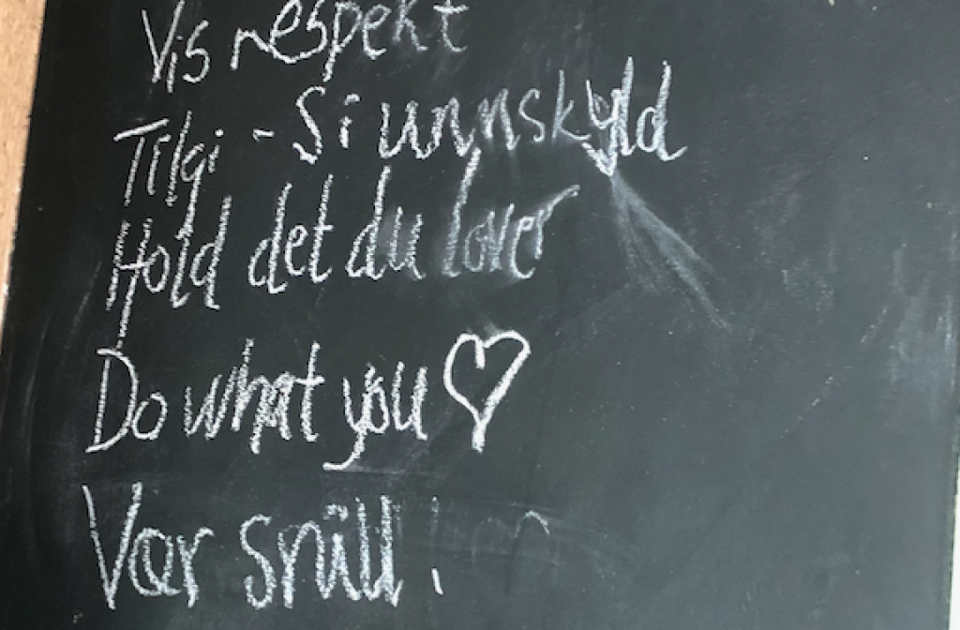 Vis respekt
Tilgi - Si unnskyld
Hold det du lover
Do what you ♡
Vær snill!